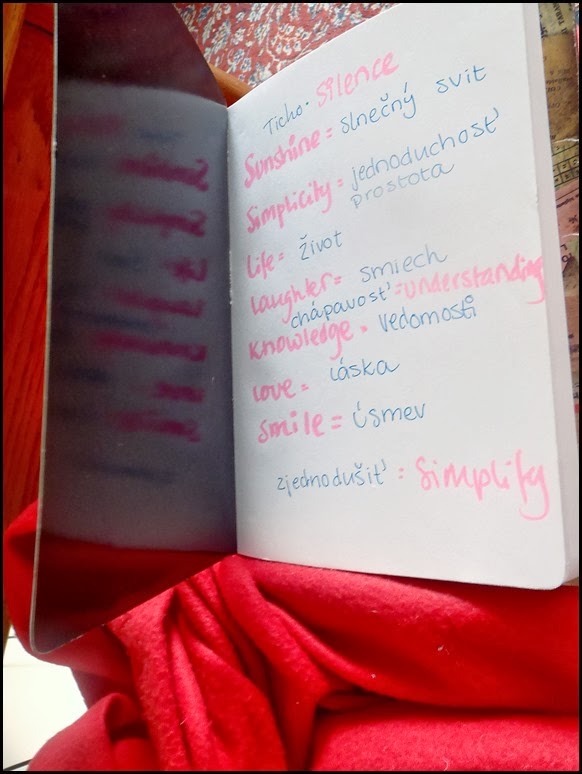 Ticho. Silence
Sunshine = slnečný svit
Simplicity = jednoduchosť
prostota
Life = život
Laughter = smiech
chápavosť = understanding
Knowledge = Vedomosti
Love = láska
smile = úsmev
zjednodušiť = Simplify